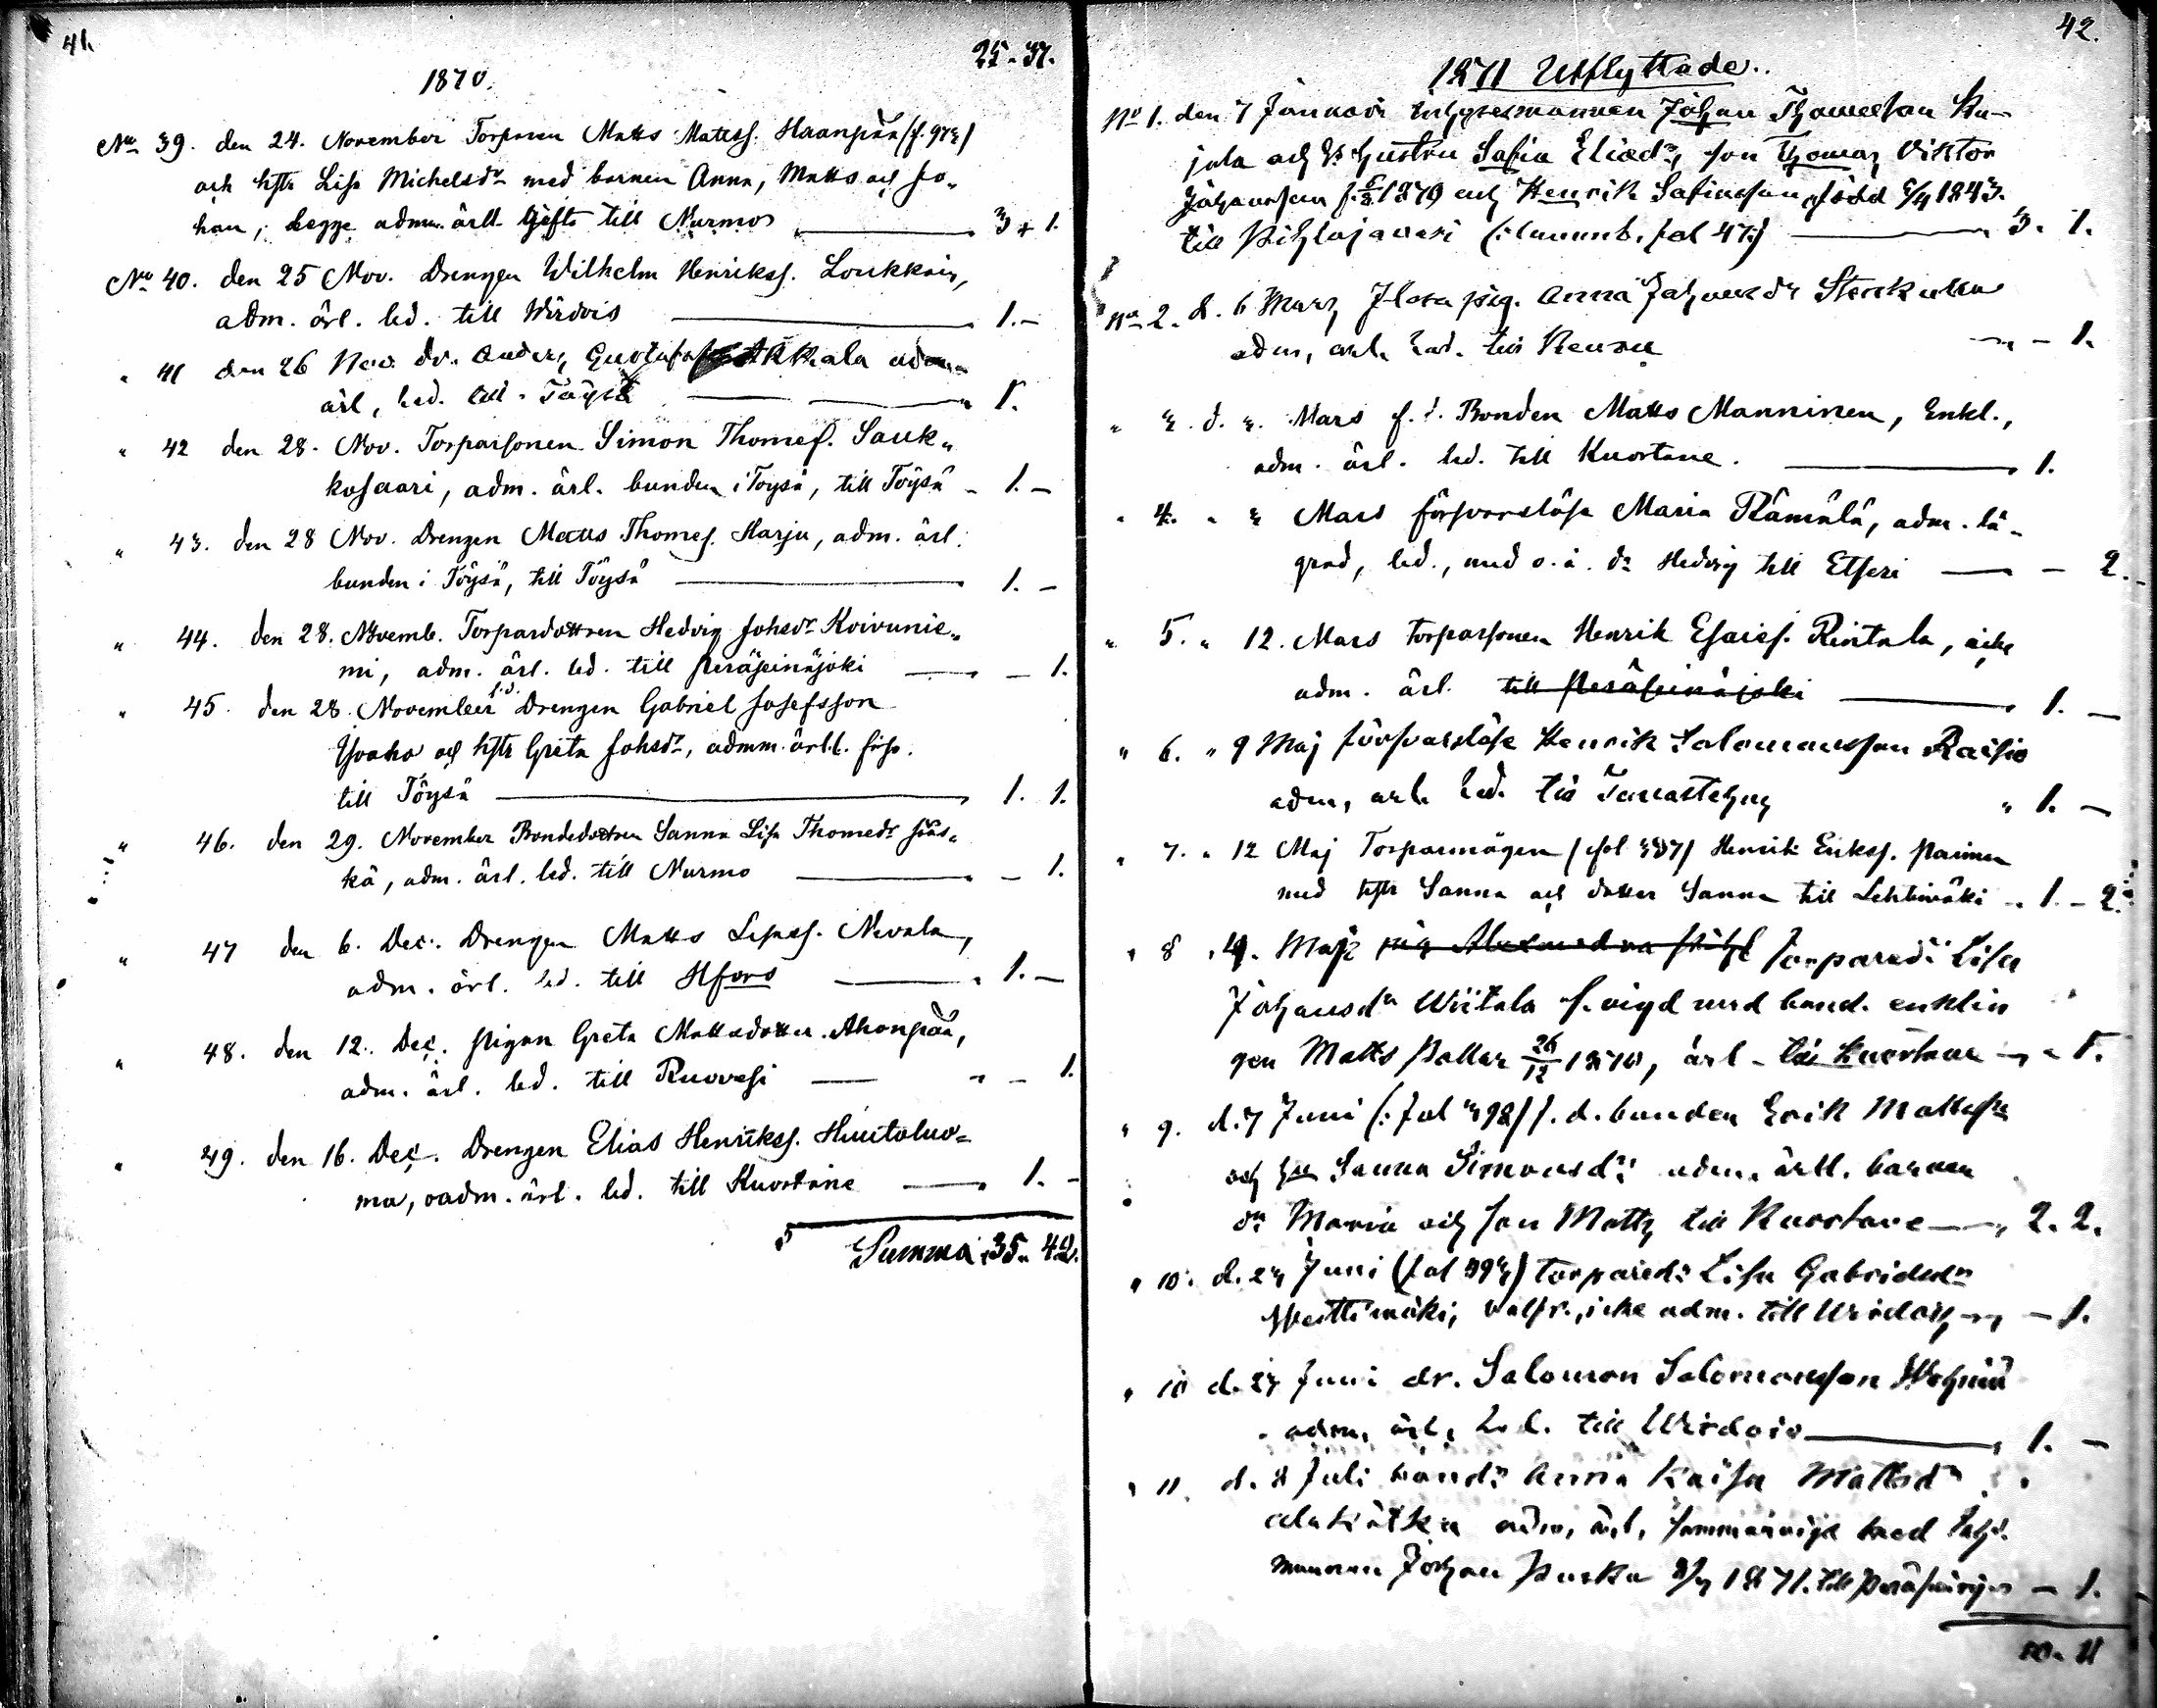 41.
25. 37.
1870.
No 39. den 24. November Torparen Matts Mattss. Haanpää (f. 973)
och hstr Lisa Michelsdr med barnen Anna, Matts och Jo-
han, begge admm. ärll. Gifte till Nurmo 3 + 1.
No 40. den 25 Nov. Drengen Wilhelm Henrikss. Loukkois,
adm. ärl. led. till Wirdois 1. -
" 41 den 26 Nov. dr. Anders Gustafss Akkala adm.
ärl, led. till Töysä 1.
" 42 den 28. Nov. Torparsonen Simon Thomes. Sauk-
kosaari, adm. ärl. bunden i Töysä, till Töysä - 1. -
" 43. den 28 Nov. Drengen Matts Thomes. Harju, adm. ärl.
bunden i Töysä, till Töysä 1. -
" 44. den 28. Novemb. Torpardottren Hedvig Johsdr Koivunie-
mi, adm. ärl. led. till Peräseinäjoki - 1.
" 45. den 28. November f.d. Drengen Gabriel Josefsson
och hstr Greta Johsdr, admm. ärll.
till Töysä 1. 1.
" 46. den 29. November Bondedottren Sanna Lisa Thomedr Jääs-
kä, adm. ärl. led. till Nurmo - 1.
" 47 den 6. Dec. Drengen Matts Nevala,
adm. ärl. led. till Hfors 1. -
" 48. den 12. Dec. Pigan Greta Mattsdotter Ahonpää,
adm. ärl. led. till Ruovesi - 1.
" 49. den 16. Dec. Drengen Elias Henrikss. Huutoluo-
ma, adm. ärl. led. till Kuortane 1. -
Summa 35. 42.
42.
1871 Utflyttade..
No 1. den 7 Januari Johan Thomesson Ku-
jala och hustru Sofia Eliædr, son Thomas Viktor
Johansson f. 1870 och Henrik Sofiasson född 5/4 1843.
till Pihlajavesi (: fol 47:) 3. 1.
No 2. d. 6 Mars pig. Anna Johansdr
adm, ärl. led. till Keuru - 1.
" 3. d. 3. Mars f.d. Bonden Matts Manninen, Enkl.,
adm. ärl. led. till Kuortane. 1.
" 4. " 3 Mars försvarslösa Maria Rämälä, adm. lä-
grad, led., med o.ä. dr Hedvig till Etseri - 2.
" 5. " 12. Mars torparsonen Henrik Esaies. Rintala, icke
adm. ärl. till Peräseinäjoki 1. -
" 6. " 9 Maj försvarslöse Henrik Salomonsson Raisio
adm, ärl. led. till Tavastehus " 1. -
" 7. " 12 Maj Torparmågen (fol 387) Henrik Erikss.
med hstr Sanna och dotter Sanna till Lehtimäki 1. - 2.
" 8 19. Maj pig Alexandra torparedr Lisa
Johansdr Wiitala f. vigd med bond. enklin
gen Matts 26/12 1870, ärl - till Kuortane 1.
" 9. d. 7 Juni (: fol 398) f. d. bonden Erik Mattss
och hu Sanna Simonsdr: adm. ärll. barnen
dr Maria och son Matts till Kuortane 2. 2.
" 10. d. 23 Juni (fol 393) torparedr Lisa Gabrielsdr
icke adm. till Virdois - 1.
" 10 d. 27 Juni dr. Salomon Salomonsson
adm, ärl, led. till Wirdois 1. -
" 11. d. 8 Juli bondr Anna Kaisa Mattsdr
Alakätkä adm, ärl, sammanvigd med
mannen Johan 1871. till - 1.
10. 11